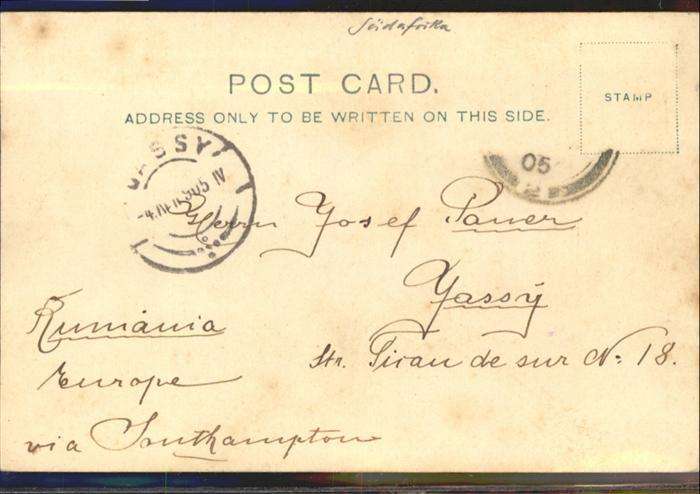 Südafrika
POST CARD.
ADDRESS ONLY TO BE WRITTEN ON THIS SIDE.
STAMP
JASSY
05
Herrn Josef Pauer
Yassÿ
Str. Picau de sur No 18.
Rumänia
Europe
via Southampton